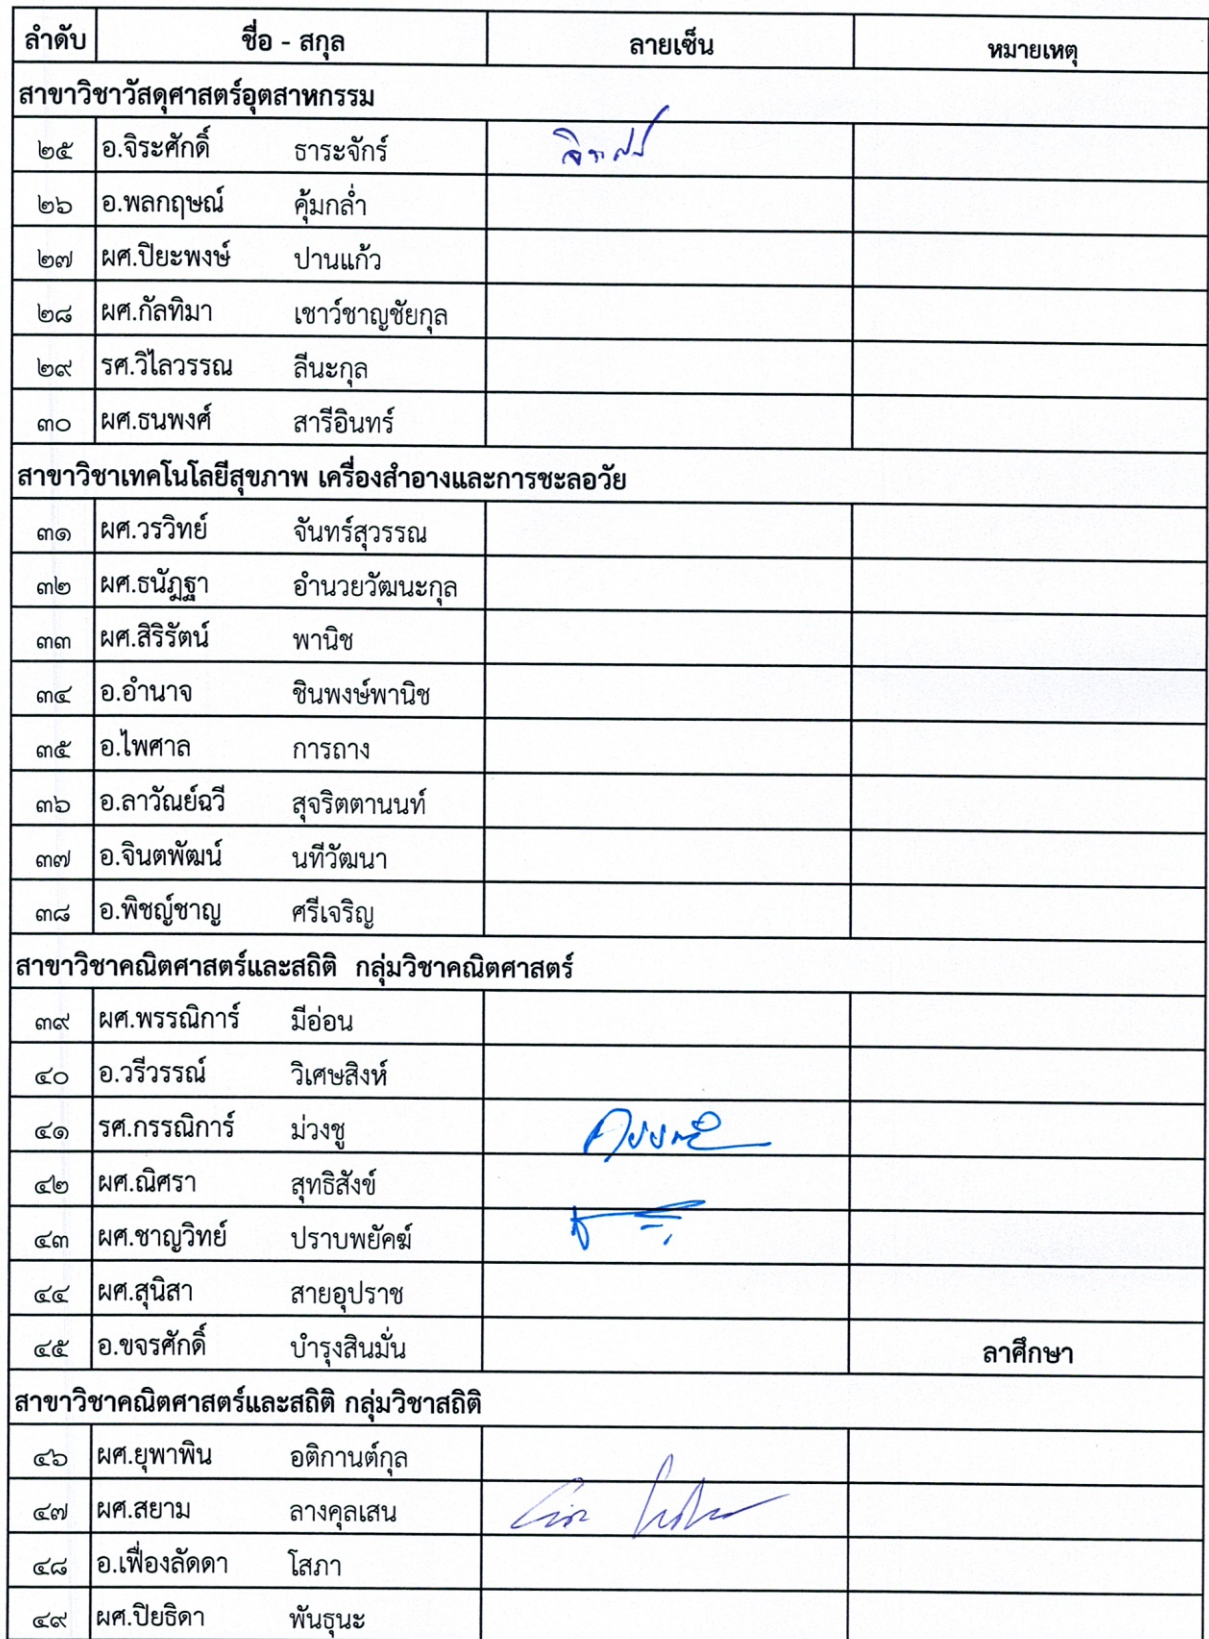 ลำดับ ชื่อ - สกุล ลายเซ็น หมายเหตุ
สาขาวิชาวัสดุศาสตร์อุตสาหกรรม
๒๕ อ.จิระศักดิ์ ธาระจักร์
๒๖ อ.พลกฤษณ์ คุ้มกล่ำ
๒๗ ผศ.ปิยะพงษ์ ปานแก้ว
๒๘ ผศ.กัลทิมา เชาว์ชาญชัยกุล
๒๙ รศ.วิไลวรรณ ลีนะกุล
๓๐ ผศ.ธนพงศ์ สารีอินทร์
สาขาวิชาเทคโนโลยีสุขภาพ เครื่องสำอางและการชะลอวัย
๓๑ ผศ.วรวิทย์ จันทร์สุวรรณ
๓๒ ผศ.ธนัฎฐา อำนวยวัฒนะกุล
๓๓ ผศ.สิริรัตน์ พานิช
๓๔ อ.อำนาจ ชินพงษ์พานิช
๓๕ อ.ไพศาล การถาง
๓๖ อ.ลาวัณย์ฉวี สุจริตตานนท์
๓๗ อ.จินตพัฒน์ นทีวัฒนา
๓๘ อ.พิชญ์ชาญ ศรีเจริญ
สาขาวิชาคณิตศาสตร์และสถิติ กลุ่มวิชาคณิตศาสตร์
๓๙ ผศ.พรรณิการ์ มีอ่อน
๔๐ อ.วรีวรรณ์ วิเศษสิงห์
๔๑ รศ.กรรณิการ์ ม่วงชู
๔๒ ผศ.ณิศรา สุทธิสังข์
๔๓ ผศ.ชาญวิทย์ ปราบพยัคฆ์
๔๔ ผศ.สุนิสา สายอุปราช
๔๕ อ.ขจรศักดิ์ บำรุงสินมั่น ลาศึกษา
สาขาวิชาคณิตศาสตร์และสถิติ กลุ่มวิชาสถิติ
๔๖ ผศ.ยุพาพิน อติกานต์กุล
๔๗ ผศ.สยาม ลางคุลเสน
๔๘ อ.เฟื่องลัดดา โสภา
๔๙ ผศ.ปิยธิดา พันธุนะ